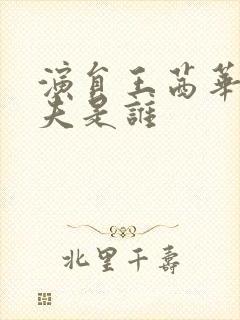 演員王茜華
夫是誰
北里千壽